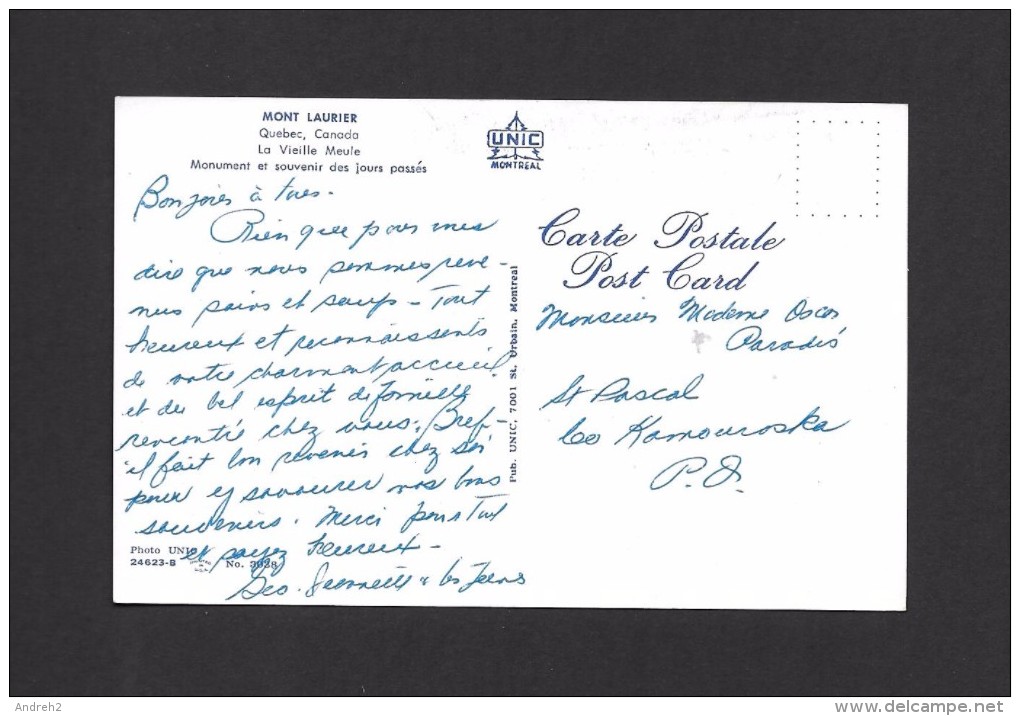 MONT LAURIER
Quebec, Canada
La Vieille Meule
Monument et souvenir des jours passés
UNIC
MONTREAL
Bonjour à tous -
Rien que pour vous
dire que nous sommes reve-
nus sains et saufs - Tout
heureux et reconnaissants
de votre charmant accueil
et du bel esprit de famille
rencontré chez vous. Bref -
il fait bon revenir chez soi
pour y savourer nos bons
souvenirs. Merci pour Tout
et soyez heureux -
Geo. Jeannette & les Jeunes
Photo UNIC
24623-B
No. 3928
Pub. UNIC, 7001 St. Urbain, Montreal
Carte Postale
Post Card
Monsieur Madame Oscar
Paradis
St Pascal
Co Kamouraska
P. Q.
Andreh2